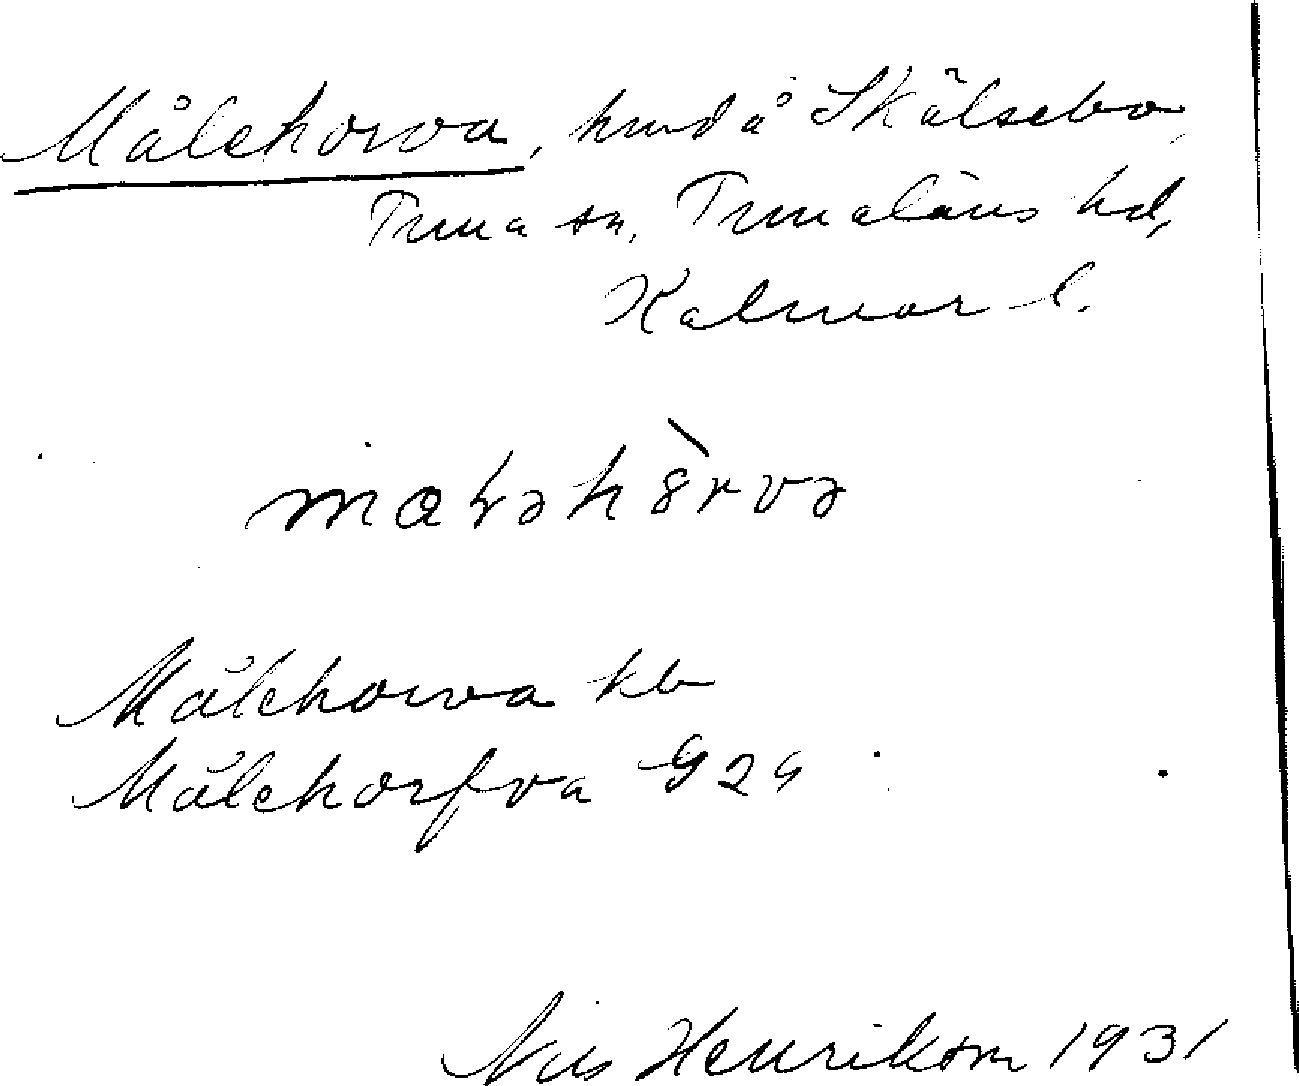 Målehorva, hmd å Skälsebo,
Tuna sn, Tunaläns hd,
Kalmar l.
Målehorva kb
Målehorfva G 29
Nils Henrikson 1931